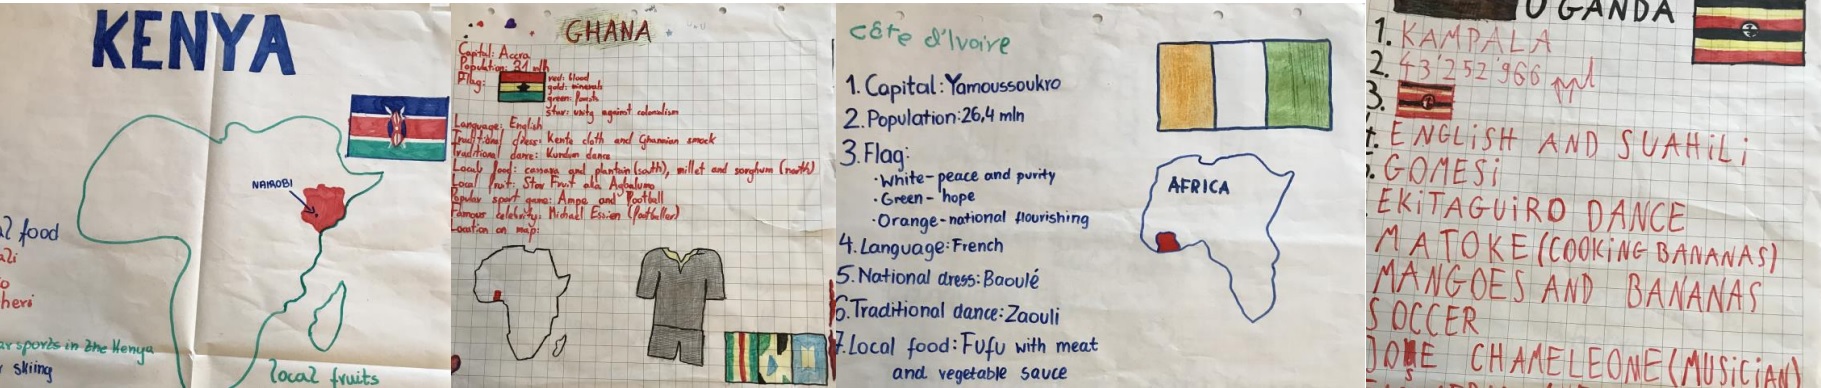 KENYA
NAIROBI
al food
ali
o
heri
ar sports in the Kenya
r skiing
local fruits
GHANA
Capital: Accra
Population: 31 mln
Flag:
red: blood
gold: minerals
green: forests
star: unity against colonialism
Language: English
Traditional dress: Kente cloth and Ghannian smock
Traditional dance: Kundum dance
Local food: canara and plantain (south), millet and sorghum (north)
Local fruit: Star Fruit aka Agbalumo
Popular sport game: Ampe and Football
Famous celebrity: Michael Essien (footballer)
Location on map:
Côte d'Ivoire
1. Capital: Yamoussoukro
2. Population: 26,4 mln
3. Flag:
· White - peace and purity
· Green - hope
· Orange - national flourishing
4. Language: French
5. National dress: Baoulé
6. Traditional dance: Zaouli
7. Local food: Fufu with meat
and vegetable sauce
AFRICA
UGANDA
1. KAMPALA
2. 43'252'966 ppl
3.
4. ENGLISH AND SUAHILI
GOMESI
EKITAGUIRO DANCE
MATOKE (COOKING BANANAS)
MANGOES AND BANANAS
SOCCER
JOSE CHAMELEONE (MUSICIAN)